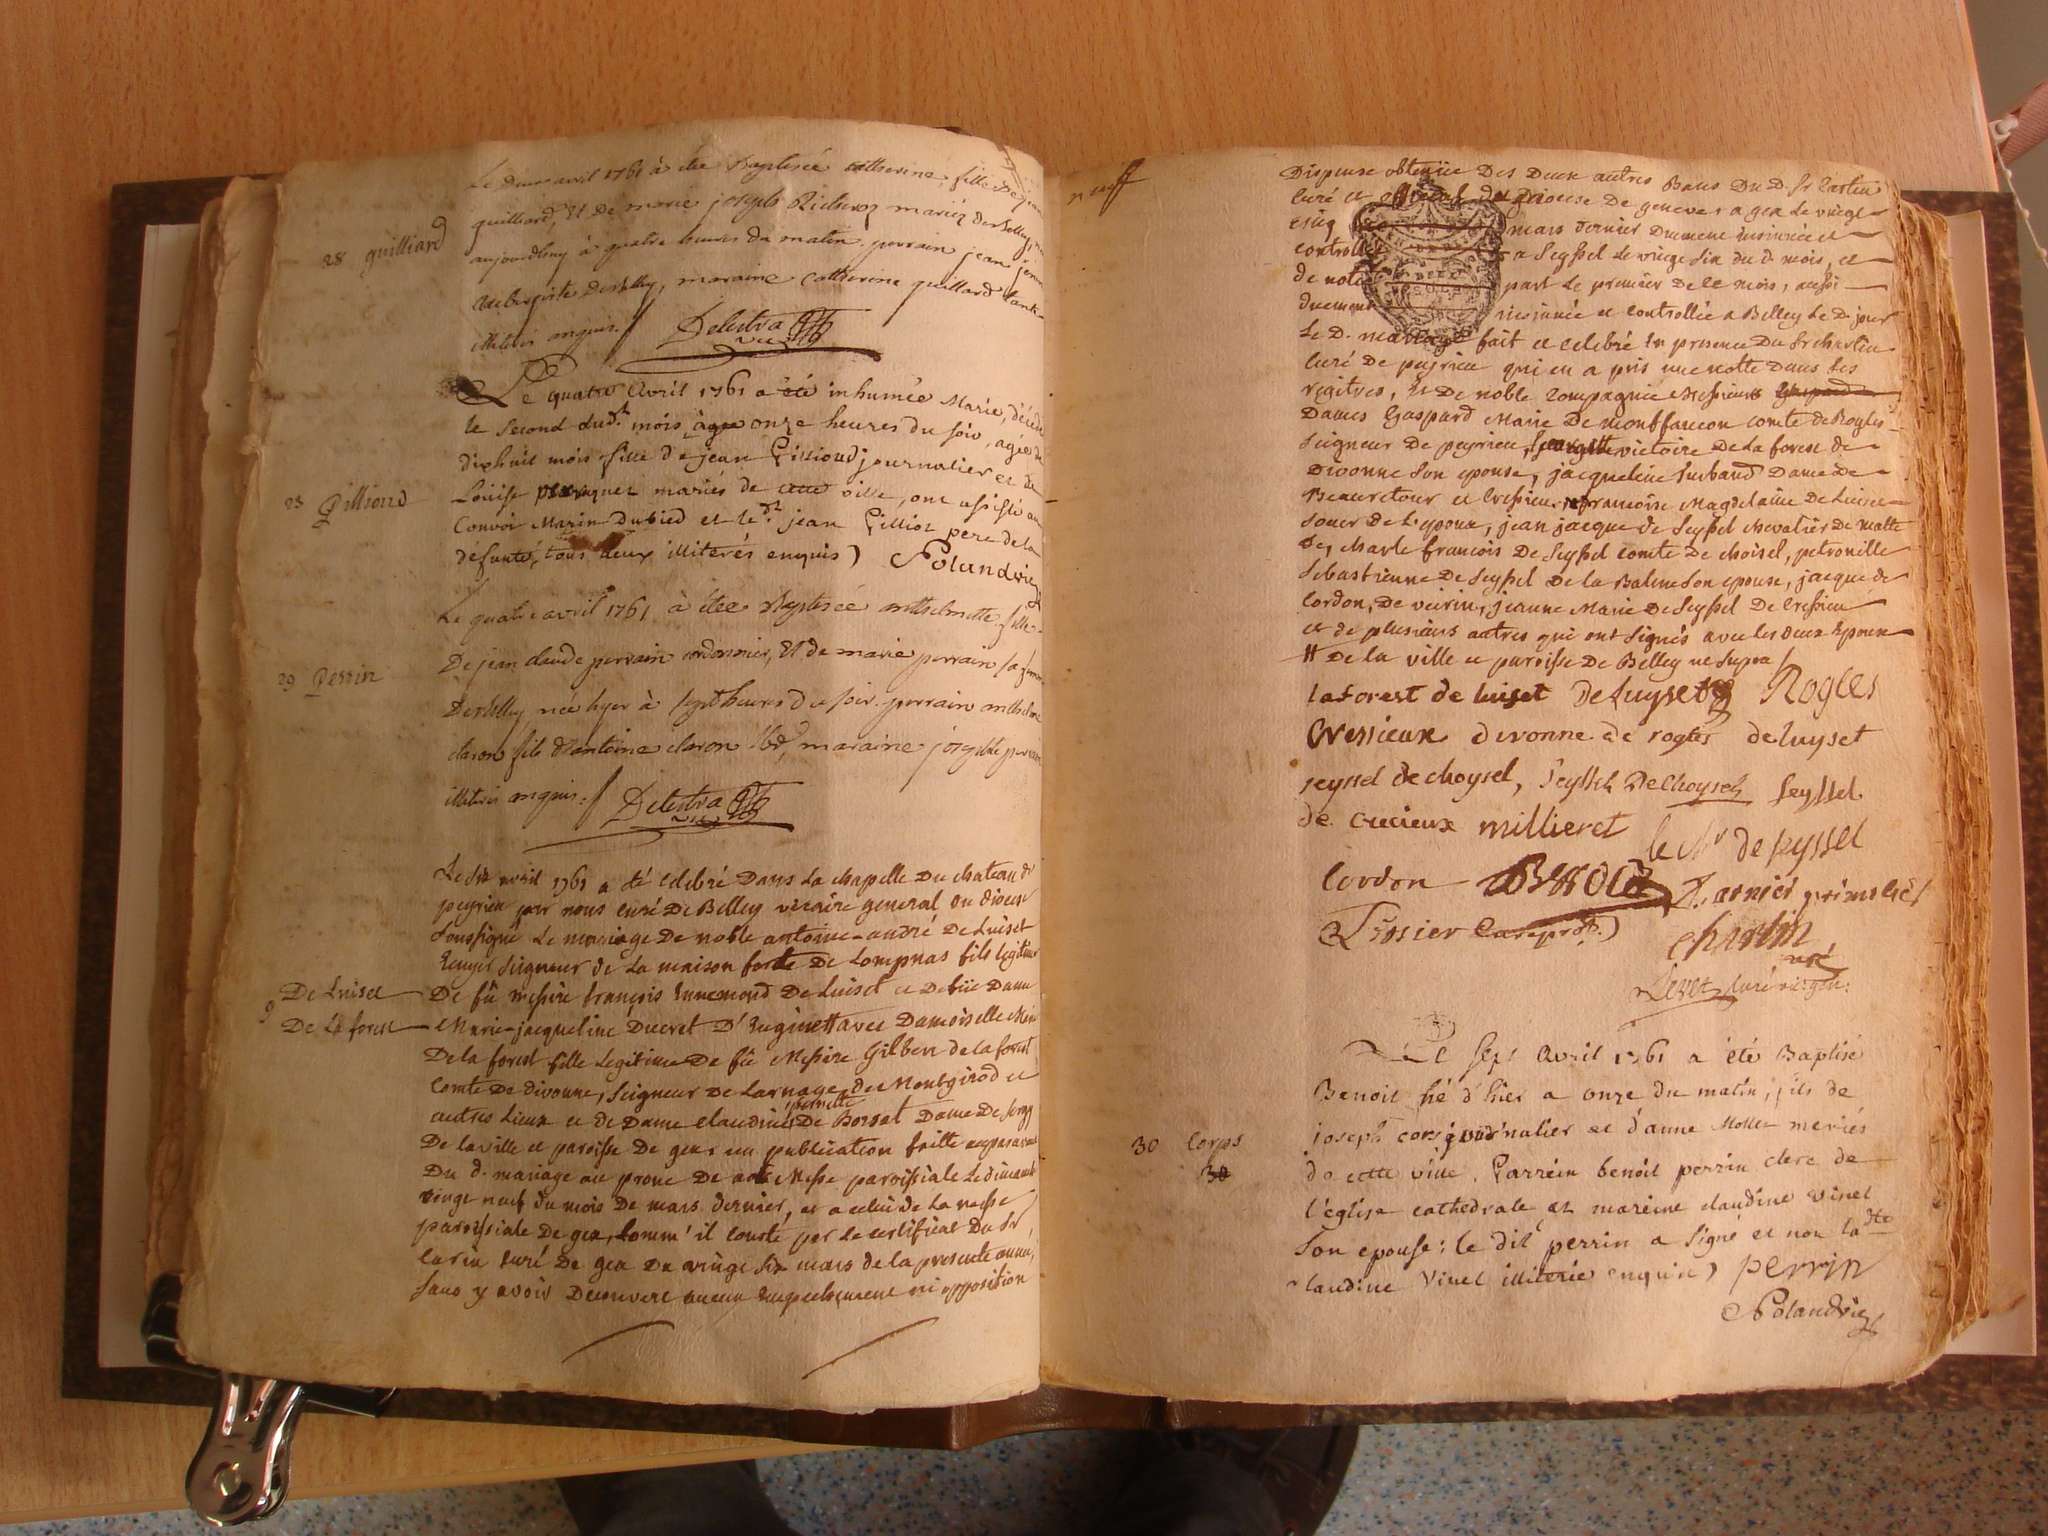 28 guilliard
Le deux avril 1761 à été Baptisée catherine, fille de jean
guilliard, Et de marie josephe Richeroz mariéz de Belley, née
aujourdhuy à quatre heures du matin, parrain jean
de Belley, maraine catherine guillard tante
illiterés enquis. / Delestra
vic
25 Gilliond
Le quatre Avril 1761 a été inhumée Marie, décédée
le second dud.t mois à onze heures du soir, agée de
dixhuit mois fille de jean Gilliond journalier et de
Louise mariés de cette ville, ont assisté au
Convoi Marin Dubied et le d.t jean Gillion pere de la
défunte, tous deux illiterés enquis) Polandrin
29 Perrin
Le quatre avril 1761 à étée Baptisée anthelmette fille
De jean claude perrain cordonnier, Et de marie perrain sa femme
De Belley née hyer à sept heures du soir. parrain anthelme
claron fils d'antoine claron maraine josephte perrain
illiterés enquis. / Delestra
vic
9 De Luiset
De La forest
Le six avril 1761 a été celebré Dans La chapelle Du chateau de
peyrieu par nous curé De Belley vicaire general du diocese
soussigné Le mariage De noble antoine-andré De Luiset
Ecuyer seigneur de La maison forte De Lompnas fils legitime
De fû messire françois Ennemond De Luiset et De füe Dame
Marie-jacqueline Ducret D' avec Damoiselle
De la forest fille Legitime De fû Messire Gilbert de la forest
comte De divonne, seigneur De Larnage, de Montgirod et
autres Lieux et de Dame claudine pernette De Borsat Dame De
De la ville et paroisse De gex, un publication faitte auparavant
Du d. mariage au prone De notre Messe paroissiale Le dimanche
vingt neuf du mois De mars dernier, et a celui de La messe
paroissiale De gex, comm' il conste par le certificat Du Sr
curé De gex Du vingt six mars de la presente année,
sans y avoir Decouvert aucun empechement ni opposition
neuf
Dispense obtenüe Des Deux autres Bans Du D. Sr
curé et du Diocese De geneve a gex Le vingt
cinq mars dernier Duement insinuée et
controllée a Seyssel Le vingt six du d. mois, et
de notre part Le premier De ce mois, aussi
duement insinuée et controllée a Belley Le D. jour
Le D. mariage fait et celebré en presence Du Sr chartin
curé De peyrieu qui en a pris une notte Dans ses
registres, Et De noble Compagnie Messieurs
Dames Gaspard Marie De montfaucon comte de Rogles
seigneur De peyrieu, victoire De La forest de
Divonne son epouse, jacqueline Dame de
Beauretour et Cressieu, francoise Magdelaine De Luiset
soeur de L'epoux, jean jacque de Seyssel chevalier De malte
De, charle francois De Seyssel comte De choisel, petronille
sebastienne De Seyssel De la Balme son epouse, jacque de
Cordon, De veirin, jeanne Marie De Seyssel De Cressieu
et de plusieurs autres qui ont signés avec les deux Epoux
# De la ville et paroisse De Belley ut supra /
laforest de luiset De Luyset Rogles
Cressieux divonne de rogles de luyset
seyssel de choysel, Seyssel De Choysel Seyssel
de crecieux millieret le ch.r de seyssel
Cordon
Tissier chartin
curé
curé vic. gen:
30 Corps
30
Le sept Avril 1761 a été Baptisé
Benoit né d'hier a onze du matin, fils de
joseph corps journalier et d'anne Mollet meriés
de cette ville. Parrein benoit perrin clerc de
l'eglise cathedrale et mareine claudine vinel
son epouse: le dit perrin a signé et non la dte
claudine Vinel illiterée enquise) perrin
Polandrin